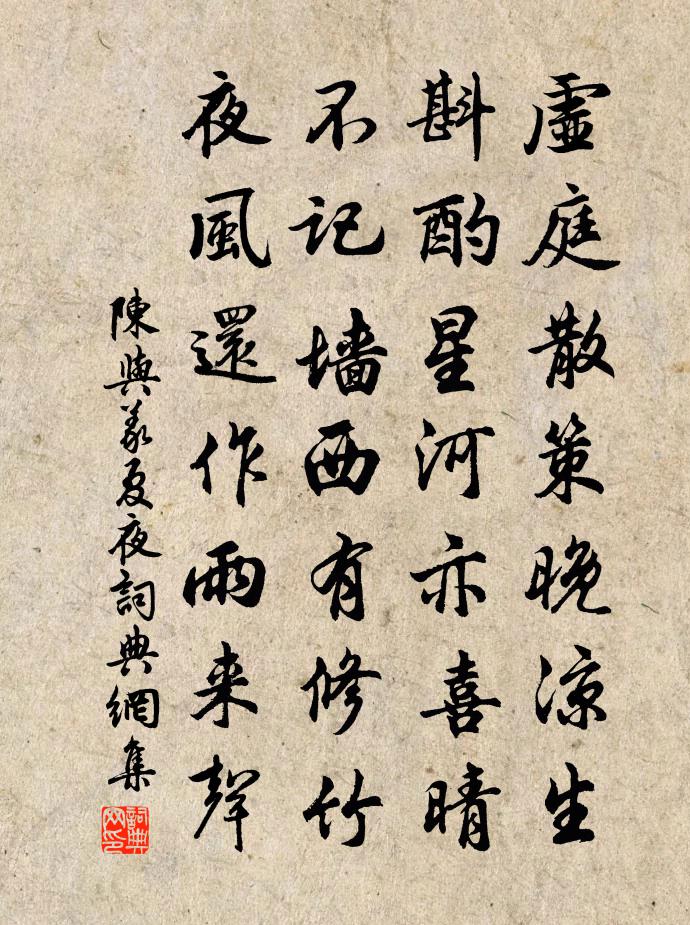 虛庭散策晚涼生
斟酌星河亦喜晴
不記墙西有修竹
夜風還作雨来聲
陳與義夏夜詞典網集
詞典网印